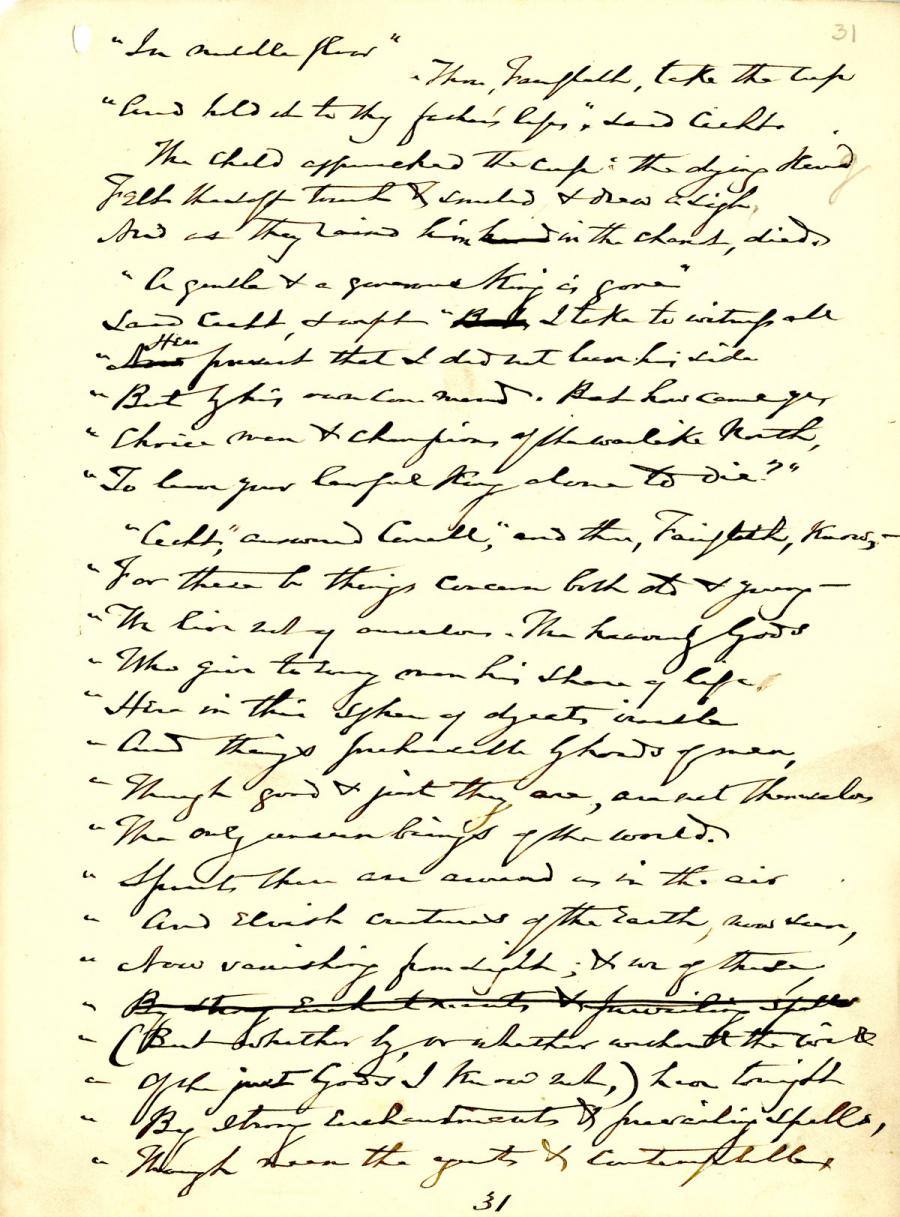 31
"In middle floor"
"Thou, Fairfeth, take the cup
"And hold it to thy father's lips", said Cecht.
The child approached the cup: the dying King
Felt the soft touch & smiled & drew a sigh,
And as they raised him in the chariot, died.
"A gentle & a generous King is gone"
Said Cecht, & wept "But, I take to witness all
"Here present that I did not leave his side
"But by his own command. But how came ye,
"Choice men & champions of the warlike North,
"To leave your lawful King alone to die?"
"Cecht," answered Conall, "and thou, Fairfeth, Know,—
"For these be things concern both old & young—
"We live not of ourselves. The heavenly Gods
"Who give to every man his share of life
"Here in this sphere of objects visible
"And things prehensible by hands of men,
"Though good & just they are, are not themselves
"The only unseen beings of the world.
"Spirits there are around us in the air
"And Elvish creatures of the Earth, now seen,
"Now vanishing from sight; & we of these
"By strong Enchantments & prevailing Spells
"(But whether by, or whether without the will
"Of the just Gods I Know not,) have tonight
"By strong Enchantments & prevailing Spells,
"Though mean the agents & contemptible,
31